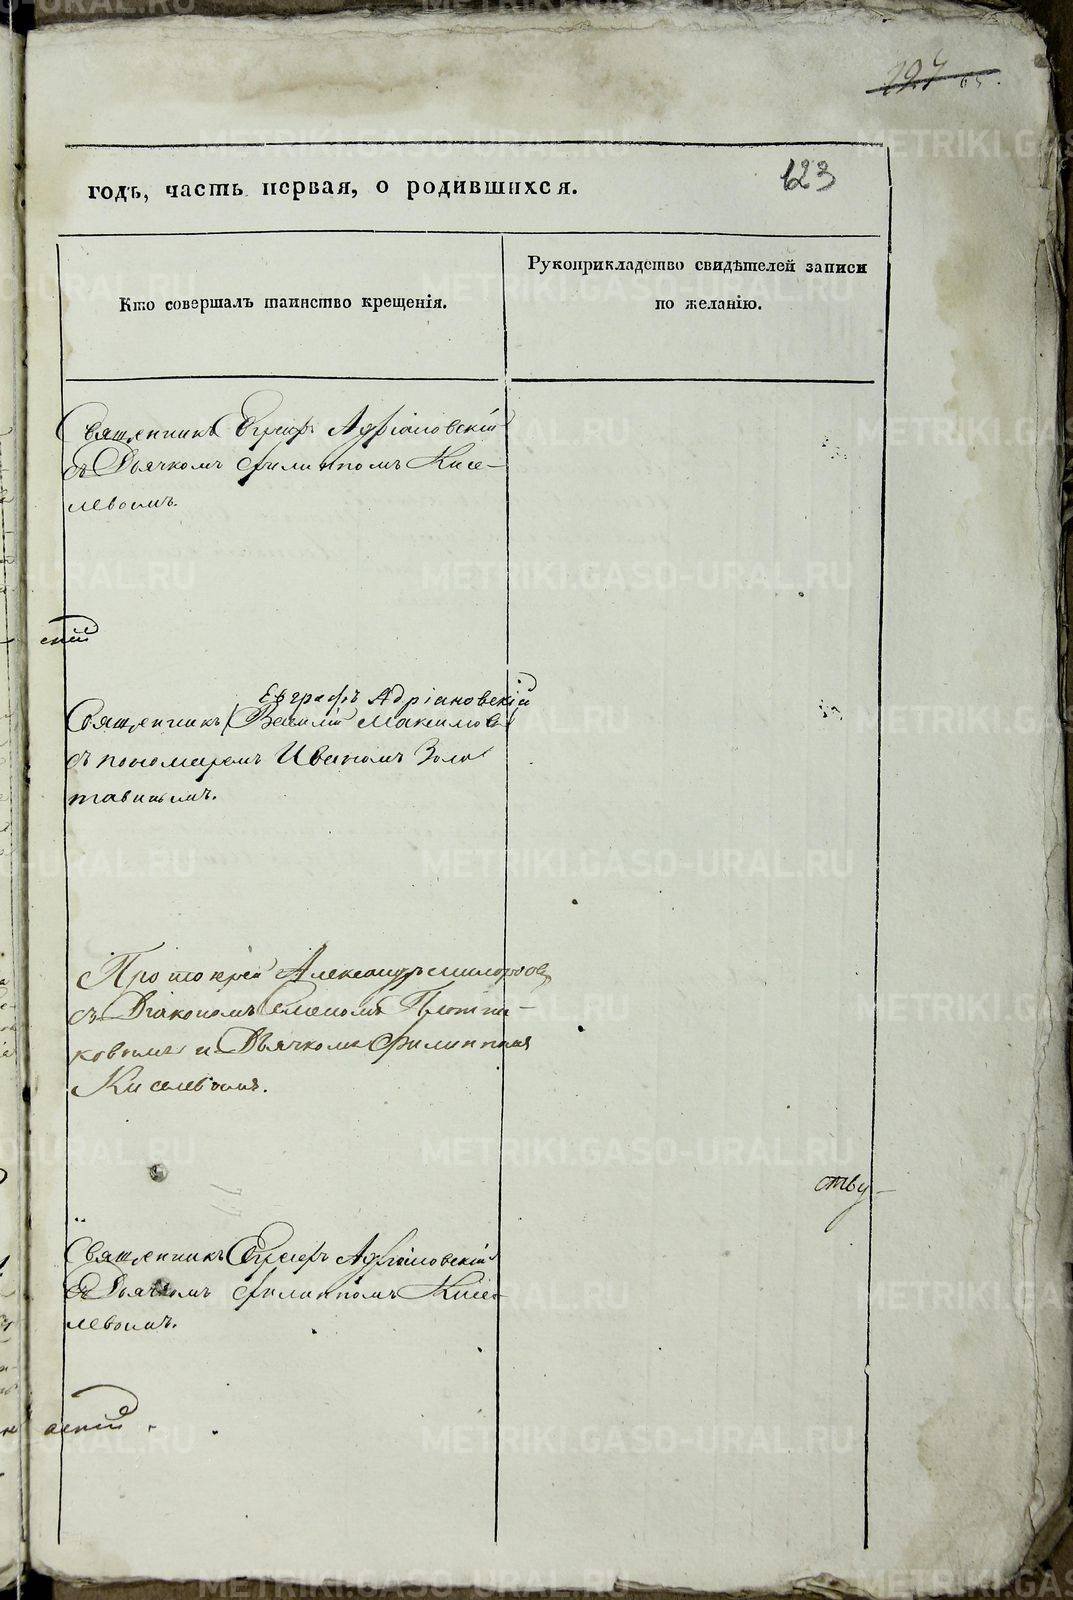 127 65.
123
годъ, часть первая, о родившихся.
Кто совершалъ таинство крещенія.
Рукоприкладство свидѣтелей записи
по желанію.
Священникъ Евграфъ Адріановскій
съ Дьячкомъ Филиппомъ Кисе-
левымъ.
скій
Евграфъ Адріановскій
Священникъ Василій Максимовъ
съ пономаремъ Иваномъ Золо
тавинымъ.
Протоіерей Александръ
съ Діакономъ Симеономъ Плотни-
ковымъ и Дьячкомъ Филиппомъ
Киселевымъ.
ству-
Священникъ Евграфъ Адріановскій
съ Дьячкомъ Филиппомъ Кисе-
левымъ.
METRIKI.GASO-URAL.RU